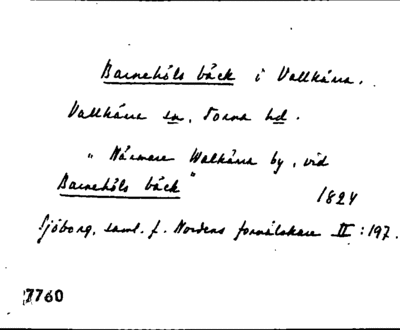 Barnehåls bäck i Vallkärra.
Vallkärra sn, Torna hd.
"Närmare Walkärra by, vid
Barnehåls bäck"
1824
Sjöborg, saml. f. Nordens fornälskare II : 197.
7760